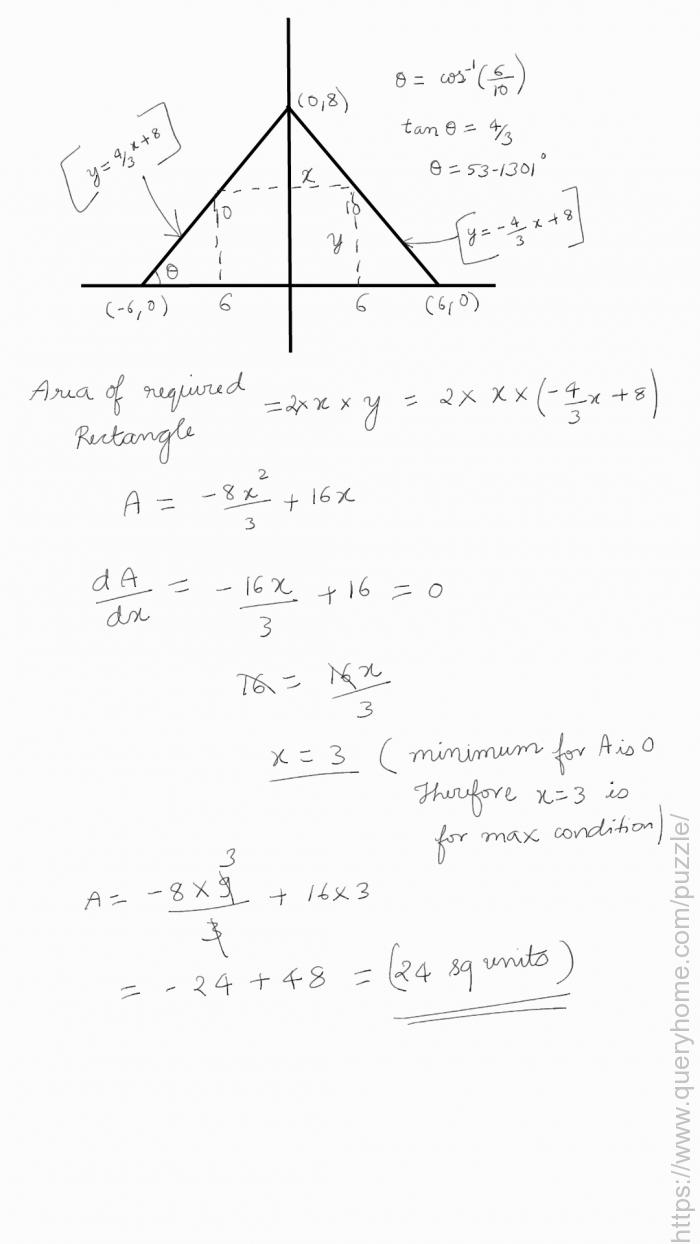 θ = cos⁻¹(6/10)
(0,8)
tan θ = 4/3
[y = 4/3 x + 8]
θ = 53-1301°
x
10
10
y
[y = -4/3 x + 8]
θ
(-6,0)
6
6
(6,0)
Area of required Rectangle = 2 × x × y = 2 × x × (-4/3 x + 8)
A = -8x²/3 + 16x
dA/dx = -16x/3 + 16 = 0
16 = 16x/3
x = 3 ( minimum for A is 0
Therefore x=3 is
for max condition)
3
A = -8 × 9/3 + 16×3
= -24 + 48 = (24 sq units)
https://www.queryhome.com/puzzle/